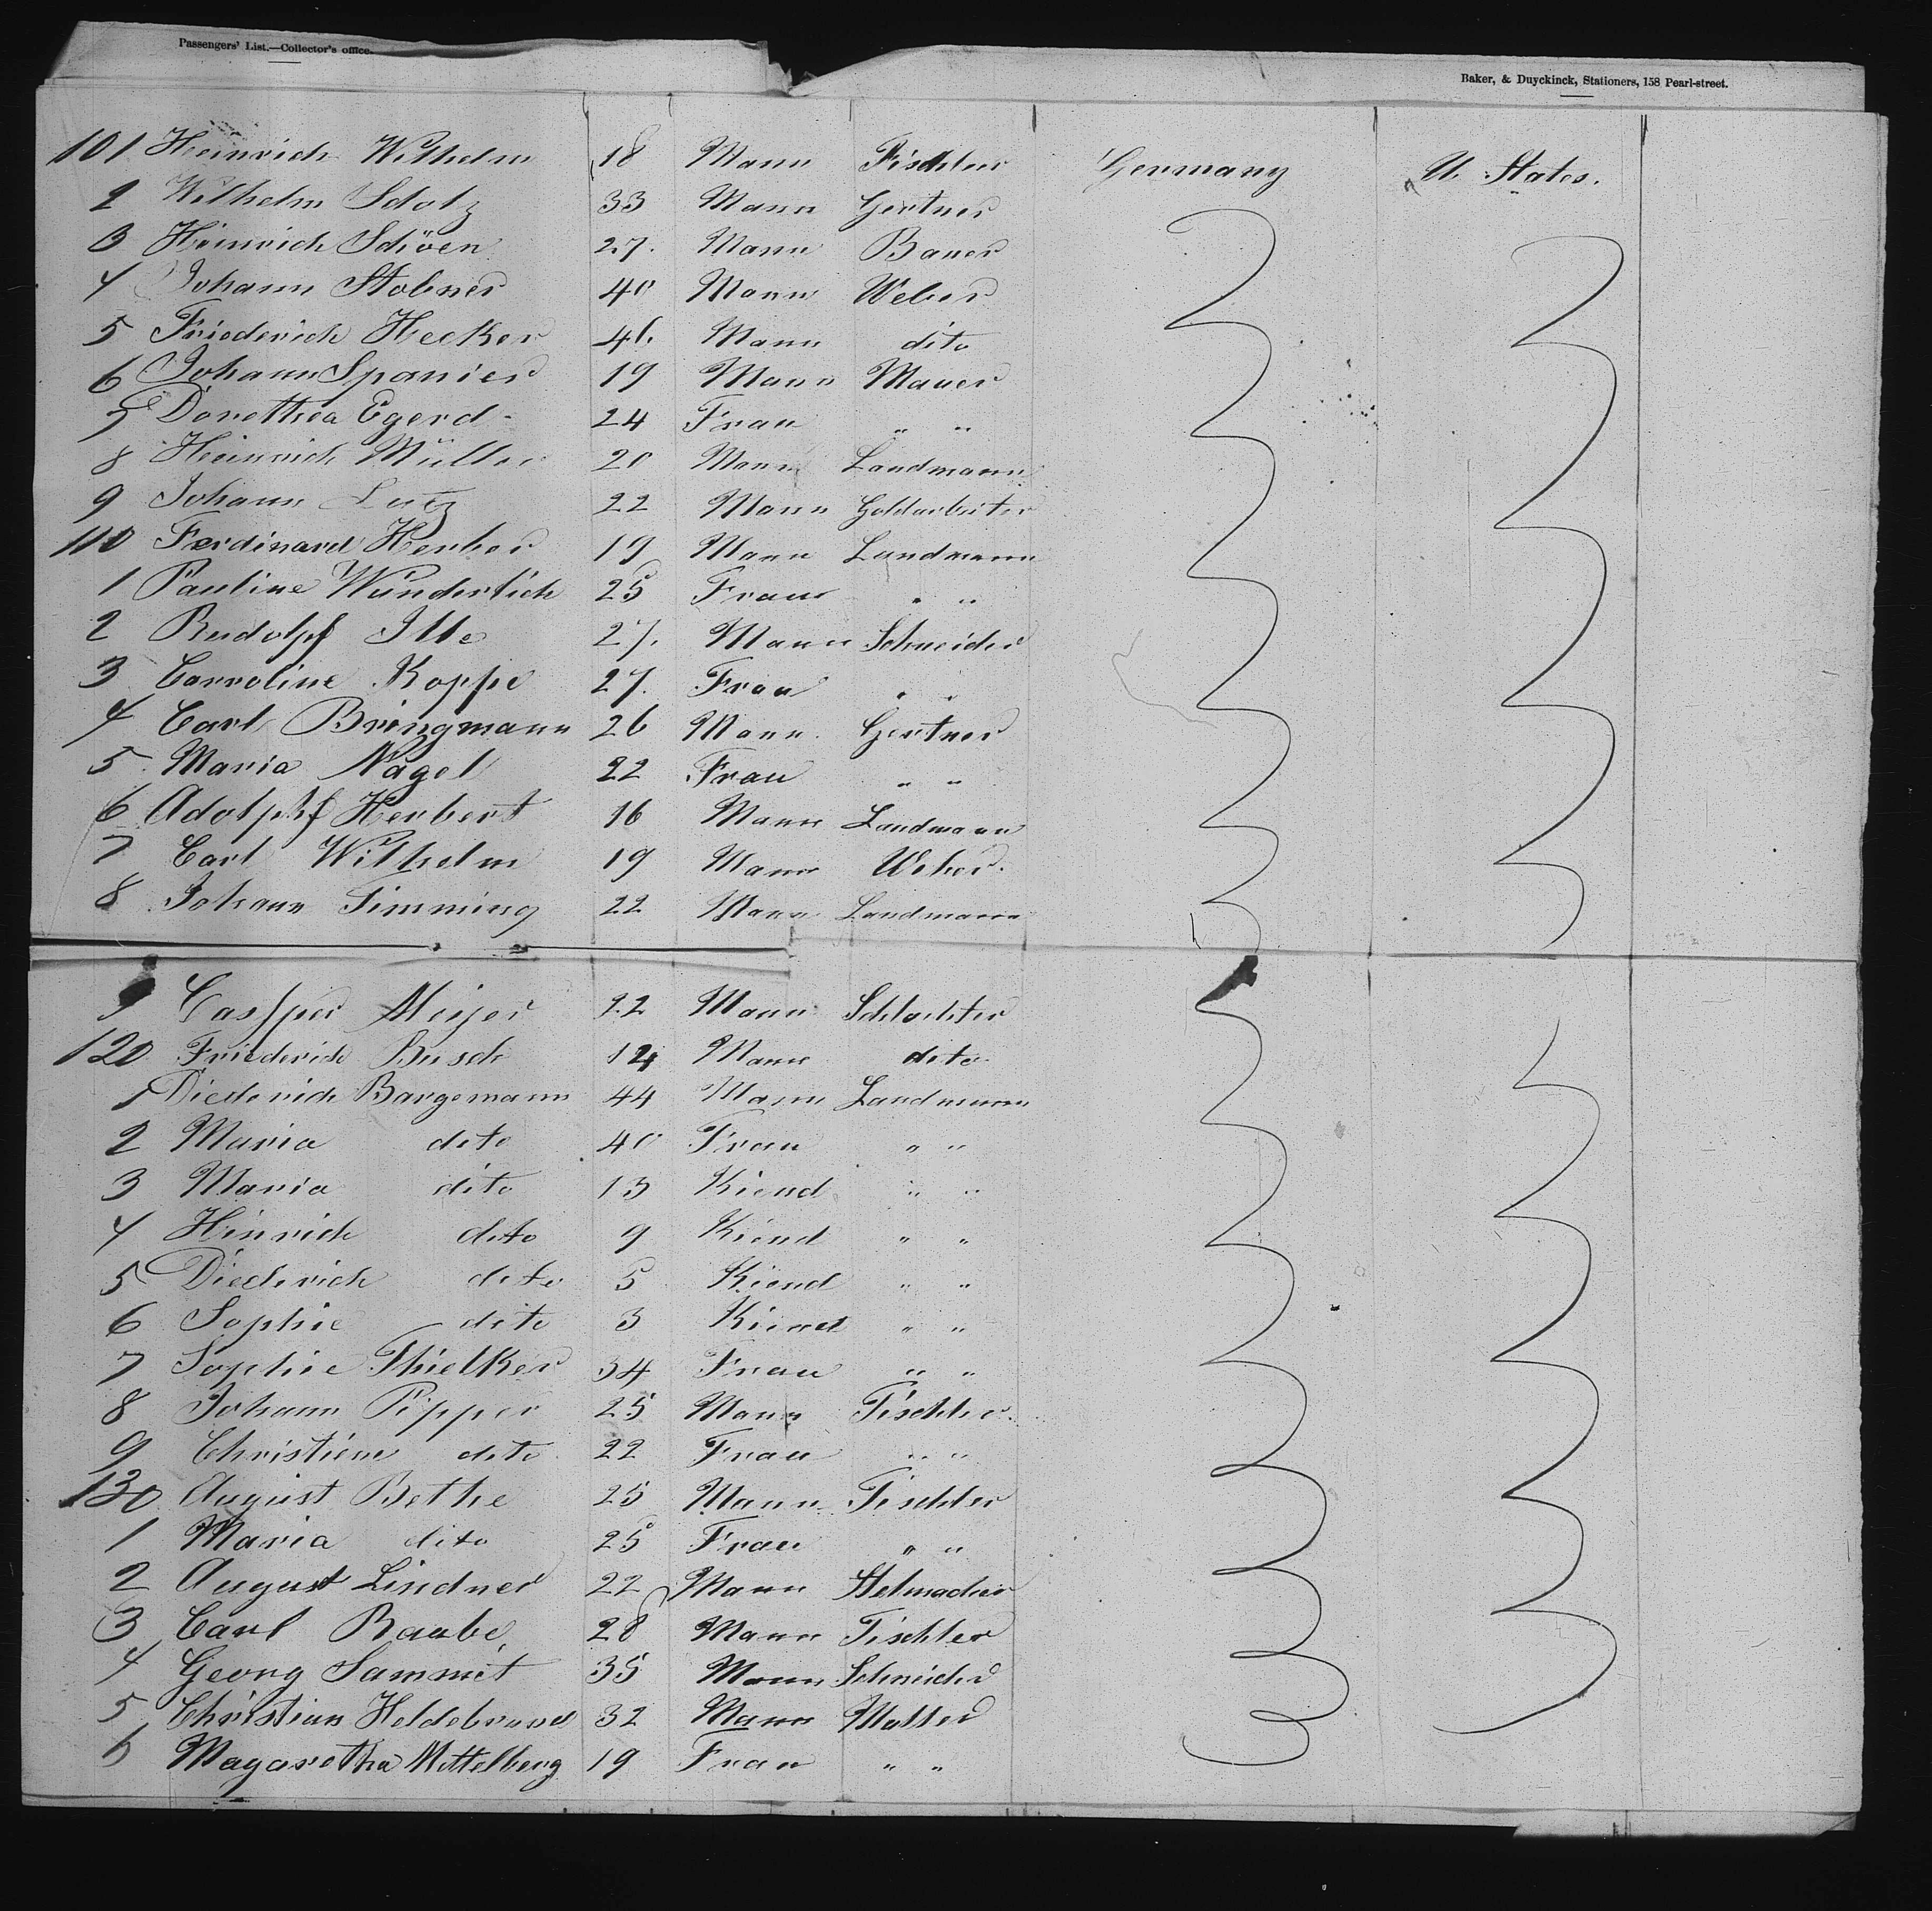 Passengers' List.—Collector's office.
Baker, & Duyckinck, Stationers, 158 Pearl-street.
101 Heinrich Wilhelm 18 Mann Tischler Germany U. States.
2 Wilhelm Scholz 33 Mann Gertner
3 Heinrich Schöen 27. Mann Bauer
4 Johann Stobner 40 Mann Weber
5 Friederich Hecker 46 Mann dito
6 Johann Spanier 19 Mann Mauer
7 Dorothea Egerd 24 Frau " "
8 Heinrich Müller 20 Mann Landmann
9 Johann Lutz 22 Mann Goldarbeiter
110 Ferdinand Herber 19 Mann Landmann
1 Pauline Wunderlich 25 Frau " "
2 Rudolpf Ille 27. Mann Schneider
3 Carroline Koppe 27. Frau " "
4 Carl Bringmann 26 Mann Gertner
5 Maria Nagel 22 Frau " "
6 Adolphf Herbert 16 Mann Landmann
7 Carl Wilhelm 19 Mann Weber
8 Johann Timming 22 Mann Landmann
9 Casper Meyer 22 Mann Schlachter
120 Friederich Busch 14 Mann dito
1 Diederich Bargemann 44 Mann Landmann
2 Maria dito 40 Frau " "
3 Maria dito 13 Kiend " "
4 Hinrich dito 9 Kiend " "
5 Diederich dito 5 Kiend " "
6 Sophie dito 3 Kiend " "
7 Sophie Thielker 34 Frau " "
8 Johann Pipper 25 Mann Tischler
9 Christiene dito 22 Frau " "
130 August Bethe 25 Mann Tischler
1 Maria dito 25 Frau " "
2 August Lindner 22 Mann Stelmacher
3 Carl Raabe 28 Mann Tischler
4 Georg Sammet 35 Mann Schneider
5 Christian Heldebrand 32 Mann Muller
6 Magaretha Mittelberg 19 Frau " "